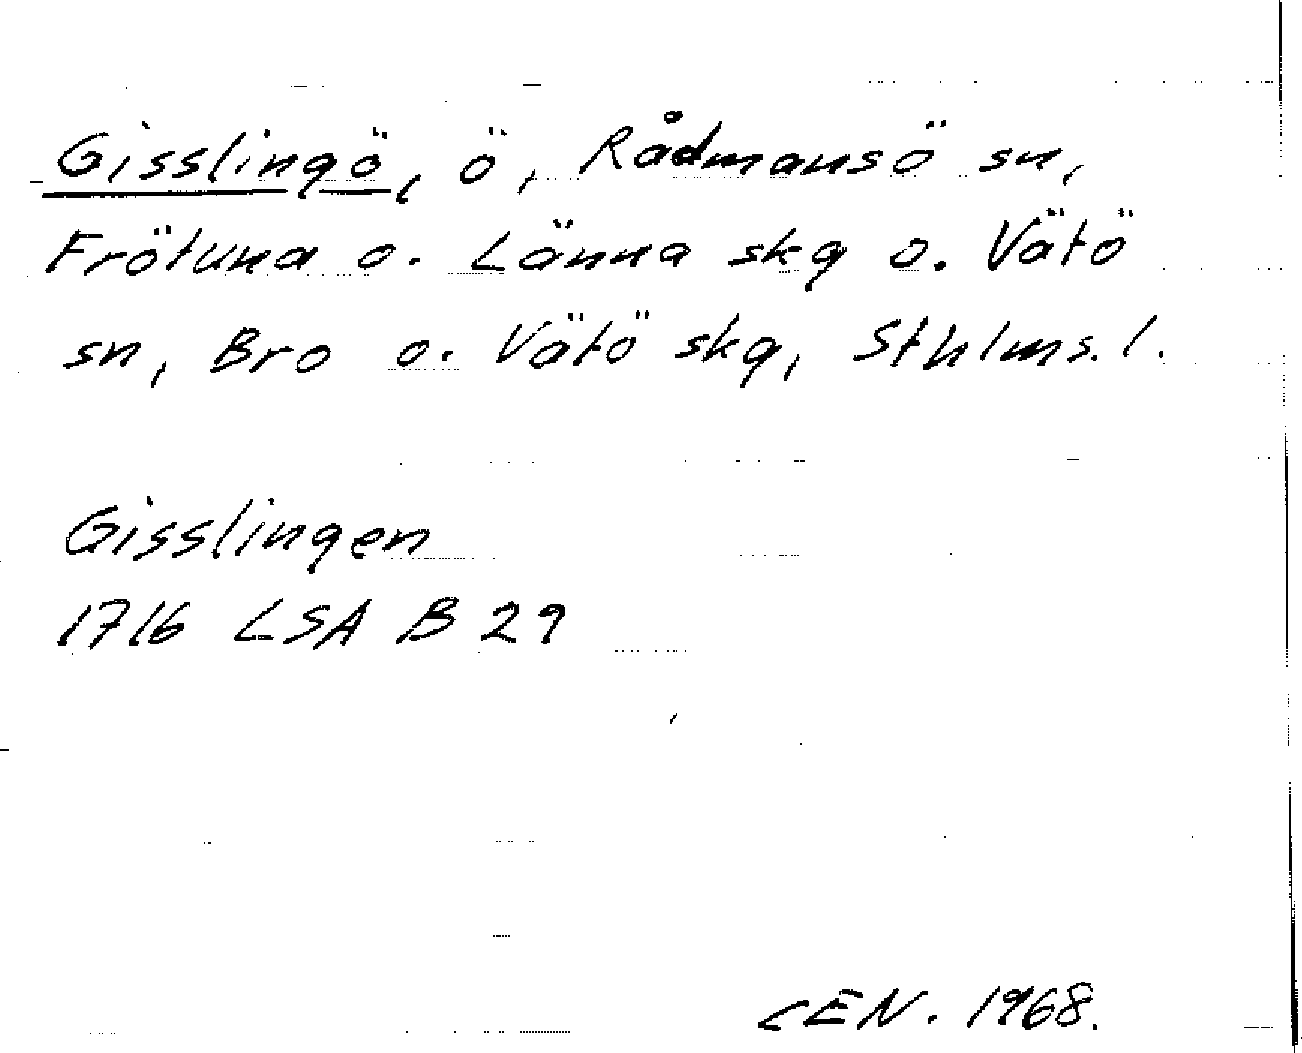 Gisslingö, ö, Rådmansö sn,
Frötuna o. Länna skg o. Vätö
sn, Bro o. Vätö skg, Sthlms. l.
Gisslingen
1716 LSA B 29
CEN. 1968.